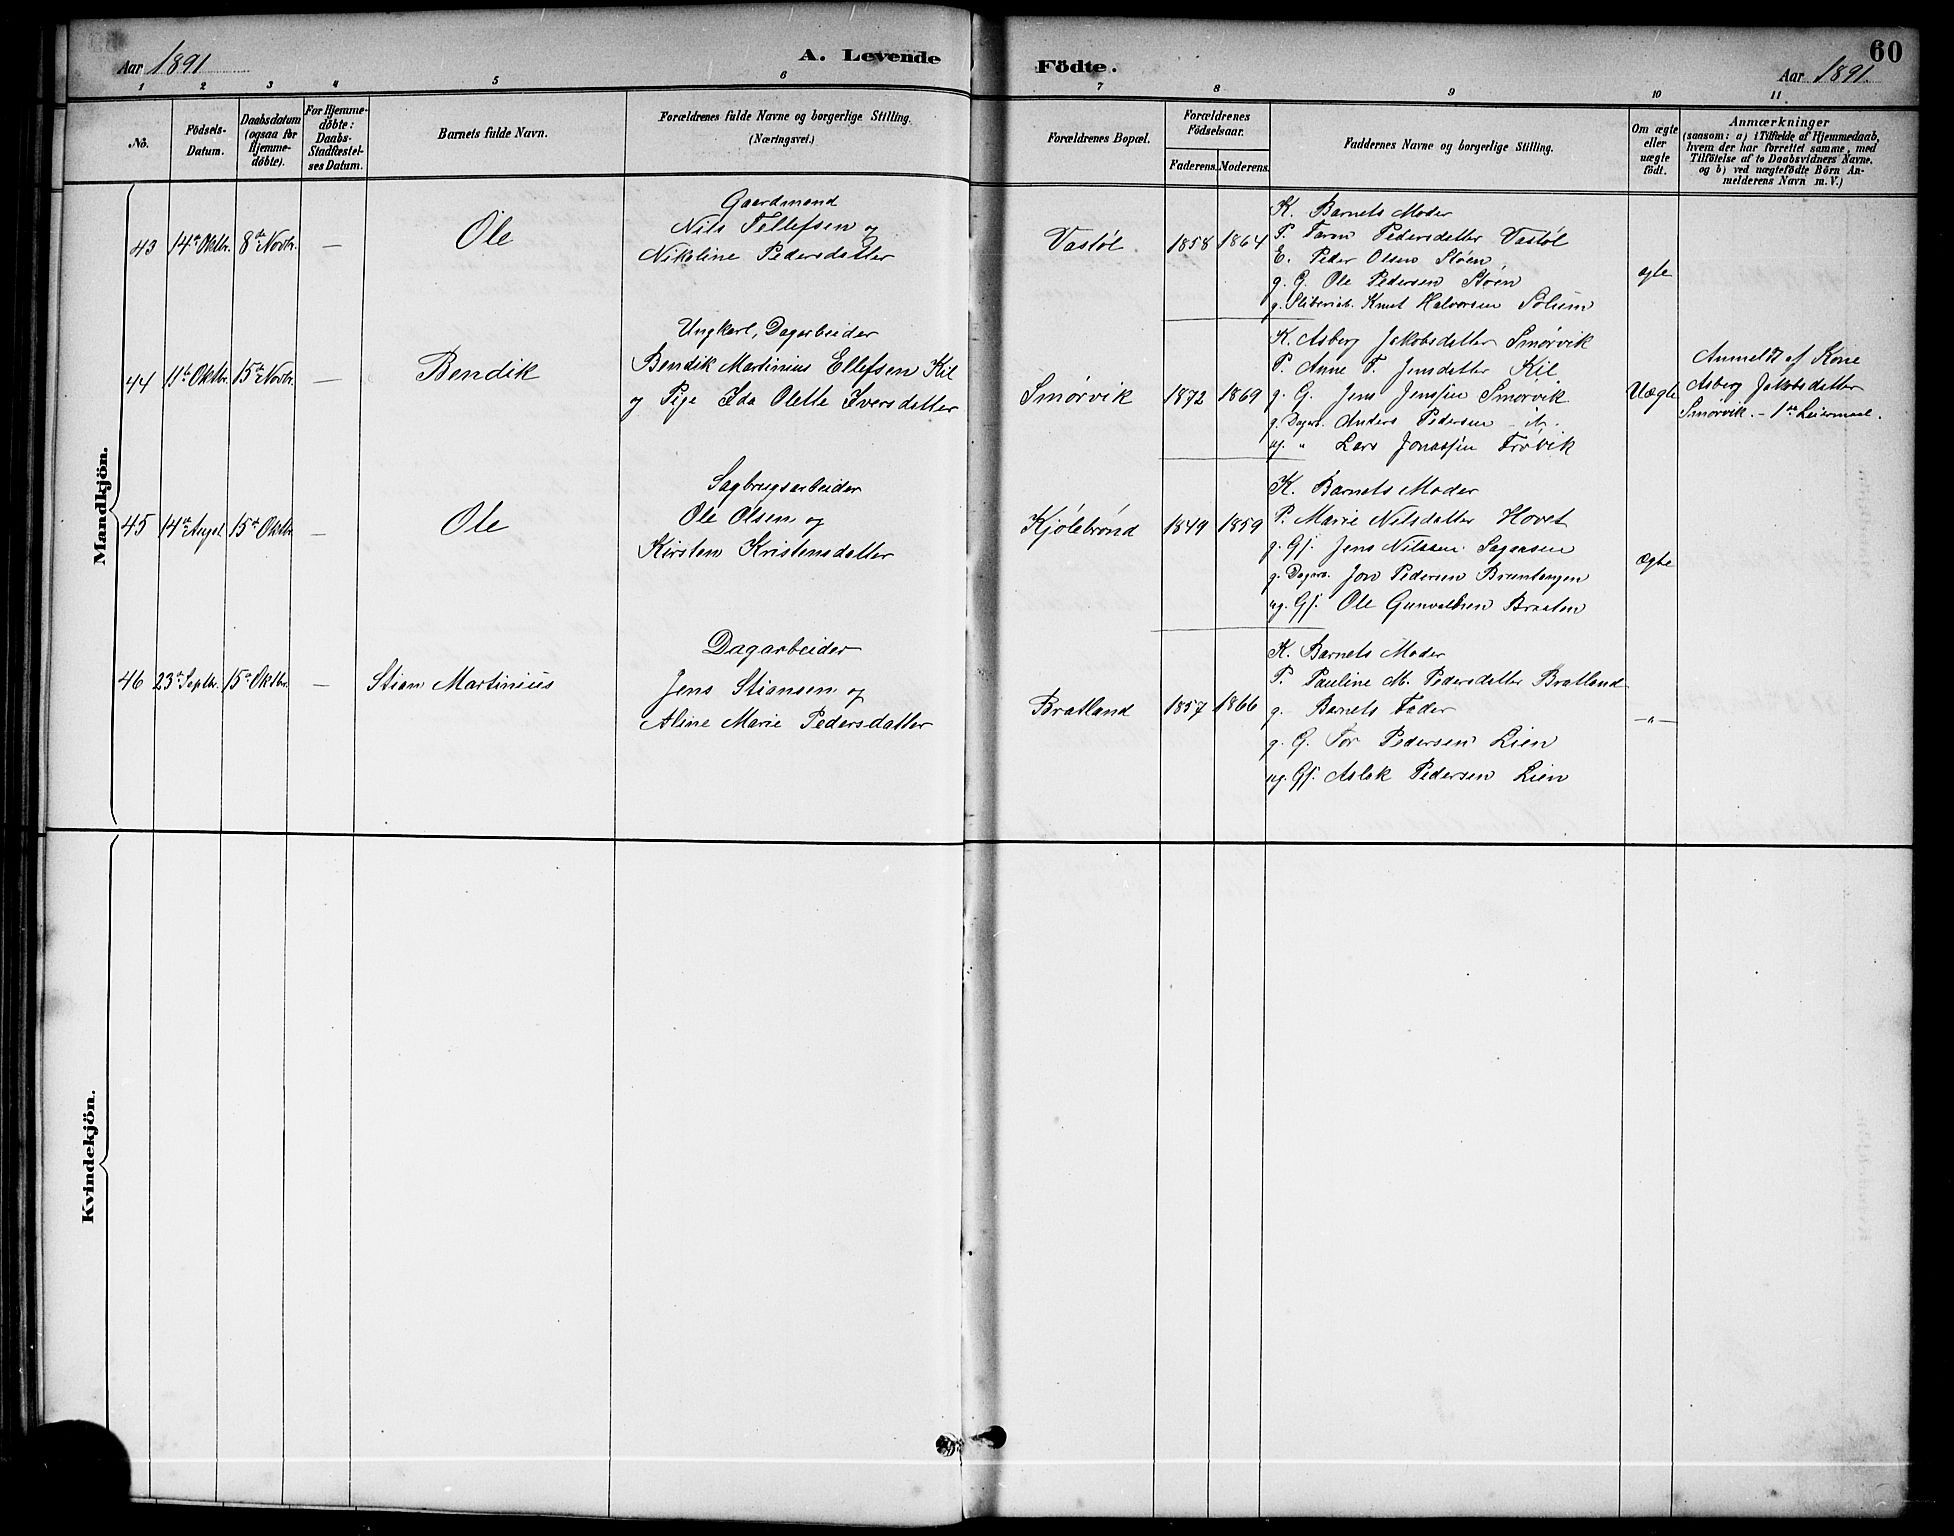 60
Aar 1891
A. Levende Födte.
Aar 1891
1 2 3 4 5 6 7 8 9 10 11.
No.
Födsels-
Datum.
Daabsdatum
(ogsaa for
Hjemme-
döbte).
For Hjemme-
döbte:
Daabs-
Stadfæstel-
ses Datum.
Barnets fulde Navn.
Forældrenes fulde Navne og borgerlige Stilling.
(Næringsvei.)
Forældrenes Bopæl.
Forældrenes
Födselsaar.
Faderens. Moderens.
Faddernes Navne og borgerlige Stilling.
Om ægte
eller
uægte
födt.
Anmærkninger
(saasom: a) i Tilfælde af Hjemmedaab,
hvem der har forrettet samme, med
Tilföielse af to Daabsvidners Navne.
og b) ved uægtefödte Börn An-
melderens Navn m. V.)
Mandkjön.
43 14de Oktbr. 8de Novbr. — Ole
Gaardmand
Nils Tellefsen og
Nikoline Pedersdatter
Vastøl 1858 1864
K. Barnets Moder
P. Taran Pedersdatter Vastøl
E. Peder Olsen Støen
g. G. Ole Pedersen Støen
g. Sliberiarb. Knut Halvorsen Solum
ægte
44 11te Oktbr. 15de Novbr. — Bendik
Ungkarl, Dagarbeider
Bendik Martinius Ellefsen Kil
og Pige Ida Olette Iversdatter
Smørvik 1872 1869
K. Asberg Jakobsdatter Smørvik
P. Anne T. Jensdatter Kil
g. G. Jens Jenssen Smørvik
g. Dagarb. Anders Pedersen
ug. " Lars Jonassen Trøvik
Uægte
Anmeldt af Kone
Asberg Jakobsdatter
Smørvik. – 1ste Leiermaal.
45 14de August 15de Oktbr. — Ole
Sagbrugsarbeider
Ole Olsen og
Kirsten Kristensdatter
Kjølebrønd 1849 1859
K. Barnets Moder
P. Marie Nilsdatter Hovet
g. Gf. Jens Nilssen Sagaasen
g. Dagarb. Jon Pedersen Bruntangen
ug. Gf. Ole Gunvaldsen Braaten
Ægte
46 23de Septbr. 15de Oktbr. — Stian Martinius
Dagarbeider
Jens Stiansen og
Aline Marie Pedersdatter
Bratland 1857 1866
K. Barnets Moder
P. Pauline M. Pedersdatter Bratland
g. Barnets Fader
g. G. Tor Pedersen Lien
ug. Gf. Aslak Pedersen Lien
—"—
Kvindekjön.